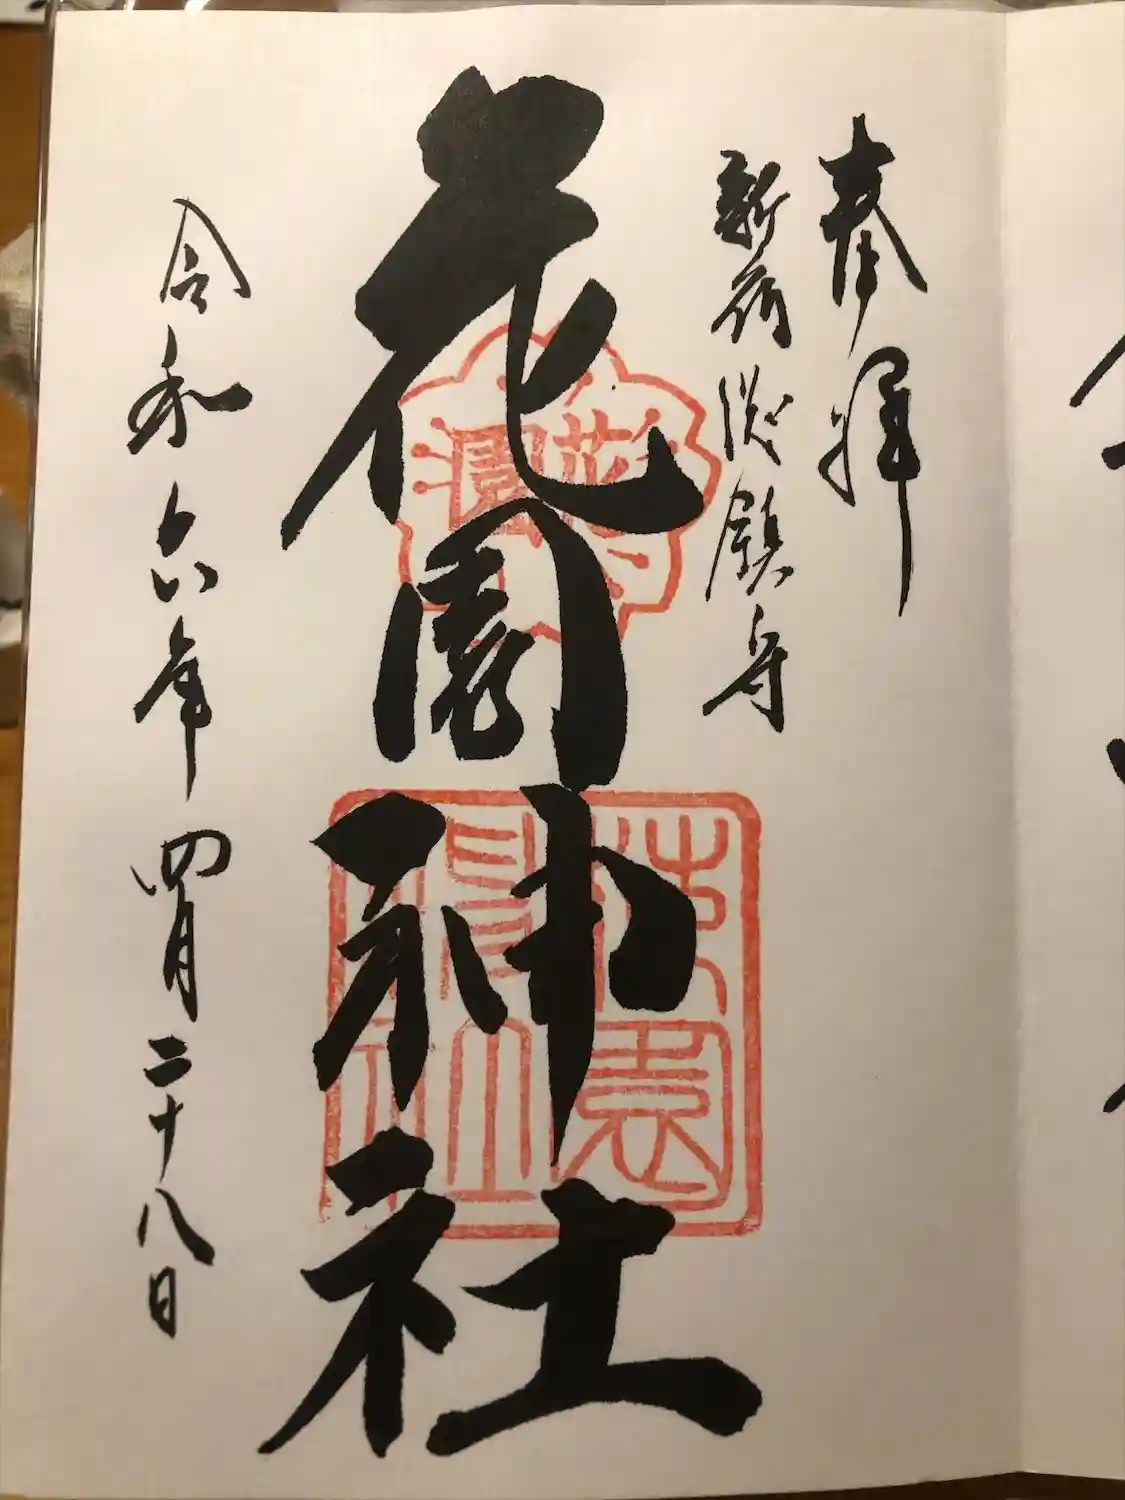 奉拝
新宿総鎮守
花園神社
花園
花園神社
令和六年四月二十八日